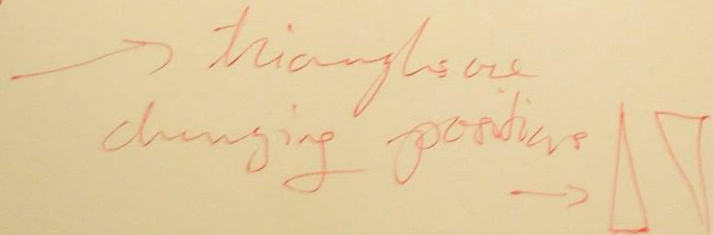 → triangles are
changing positions
→